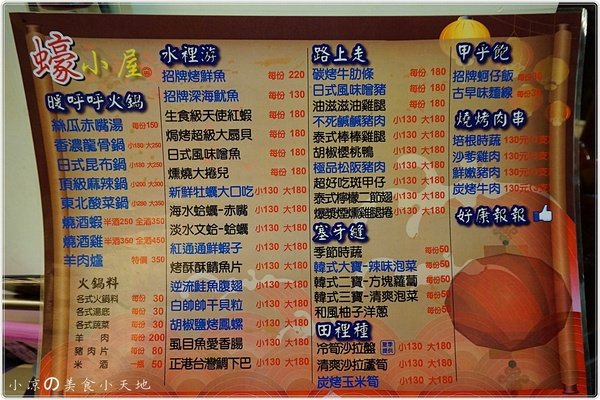 蠔小屋
暖呼呼火鍋
絲瓜赤嘴湯 每份150
香濃龍骨鍋 小180 大250
日式昆布鍋 小180 大250
頂級麻辣鍋 小200 大300
東北酸菜鍋 小200 大300
燒酒蝦 半酒250 全酒350
燒酒雞 半酒350 全酒450
羊肉爐 特價 350
火鍋料
各式火鍋料 每份 30
各式湯底 每份 30
各式蔬菜 每份 30
羊肉 每份 200
豬肉片 每份 80
米酒 一瓶 50
水裡游
招牌烤鮮魚 每份 220
招牌深海魷魚 每份 130
生食級天使紅蝦 每份 180
焗烤超級大扇貝 每份 180
日式風味噌魚 每份 180
燻燒大捲兒 每份 180
新鮮牡蠣大口吃 小130 大180
海水蛤蠣-赤嘴 小130 大180
淡水文蛤-蛤蠣 小130 大180
紅通通鮮蝦子 小130 大180
烤酥酥鯖魚片 小130 大180
逆流鮭魚腹翅 小130 大180
白帥帥干貝粒 小130 大180
胡椒鹽烤鳳螺 小130 大180
虱目魚愛香腸 小130 大180
正港台灣鯛下巴 小130 大180
路上走
碳烤牛肋條 每份 180
日式風味噌豬 每份 180
油滋滋油雞腿 每份 180
不死鹹鹹豬肉 小130 大180
泰式棒棒雞腿 小130 大180
胡椒櫻桃鴨 小130 大180
極品松阪豬肉 小130 大180
超好吃斑甲仔 小130 大180
泰式檸檬二節翅 小130 大180
爆漿燻雞腿捲 小130 大180
塞牙縫
季節時蔬 每份50
韓式大寶-辣味泡菜 每份50
韓式二寶-方塊蘿蔔 每份50
韓式三寶-清爽泡菜 每份50
和風柚子洋蔥 每份50
田裡種
冷筍沙拉盤 小130 大180
清爽沙拉蘆筍 小130 大180
炭烤玉米筍 小130 大180
甲乎飽
招牌蚵仔飯 每份
古早味麵線 每份
燒烤肉串
培根時蔬 130元
沙爹雞肉 130元
鮮嫩豬肉 130元
炭烤牛肉 130元
好康報報
小涼の美食小天地